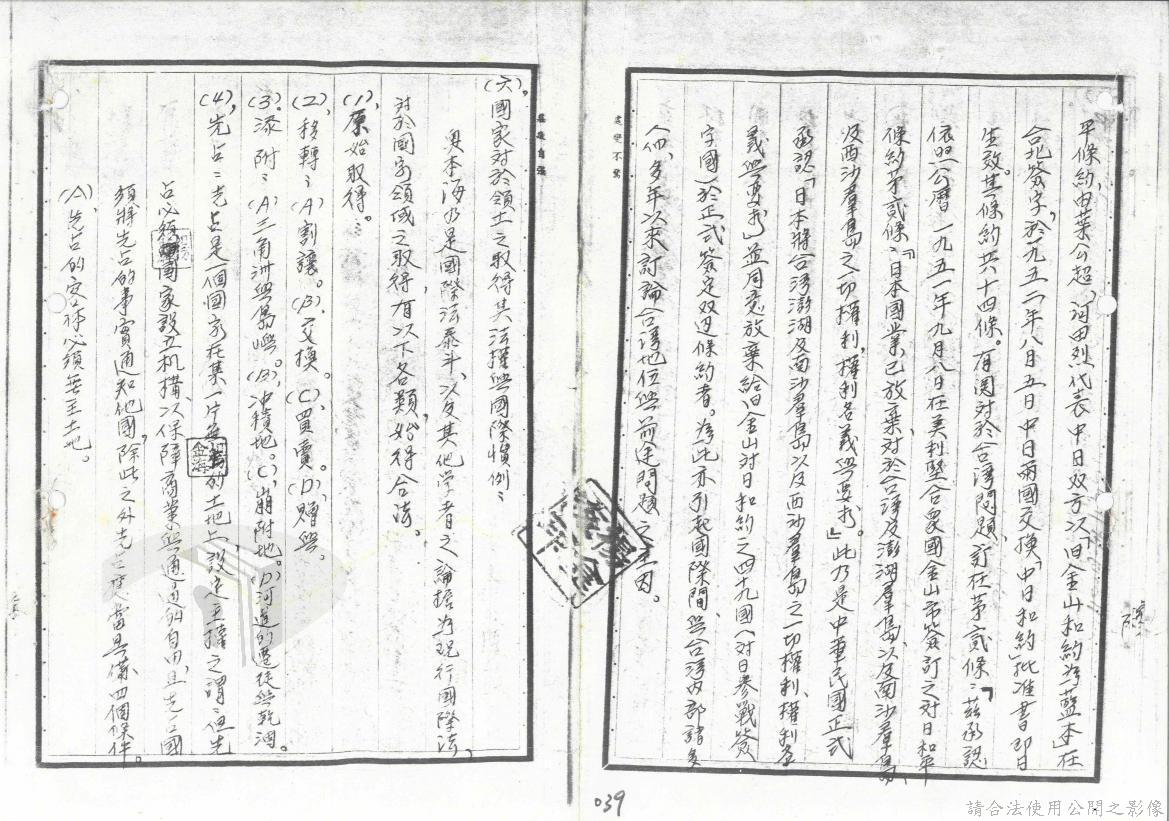 平條約,由葉公超,河田烈代表中日双方以「旧金山和約為藍本」在
台北簽字,於一九五二年八月五日中日兩國交換「中日和約」批准書即日
生效。其條約共十四條。有関対於台湾問題,訂在第貳條:『茲承認
依照公曆一九五一年九月八日在美利堅合衆國金山市簽訂之対日和平
條約第貳條:「日本國業已放棄対於台湾及澎湖羣島、以及南沙羣島
及西沙羣島之一切權利,權利名義與要求」。』此乃是中華民國正式
承認「日本將台湾澎湖及南沙羣島以及西沙羣島之一切權利、權利名
義與要求」並同意放棄給旧金山対日和約之四十九國(対日參戰簽
字國)於正式簽定双边條約者。為此亦引起國際間、與台湾內部諸多
人们,多年以來討論台湾地位與前途問題之主因。
處變不驚
莊敬自強
(六)。國家対於領土之取得其法權與國際慣例:
奥本海乃是國際法泰斗、以及其他学者之論據為現行國際法,
対於國家領域之取得,有以下各類,始得合法。
(1)、原始取得:。
(2)、移轉:(A)割讓。(B)、交換。(C)買賣。(D)、贈與。
(3)。添附:(A)三角洲與島嶼。(B)、冲積地。(C)、崩附地。(D)河道的遷徙與乾涸。
(4)、先占:先占是一個國家在某一片無 的土地上設定主權之謂:但先
占必須 國家設立机構、以保障商業與通過的自由,且先占國
須將先占的事實通知他國,除此之外先占應當具備四個條件。
(A)、先占的客体必須無主土地。
039
請合法使用公開之影像